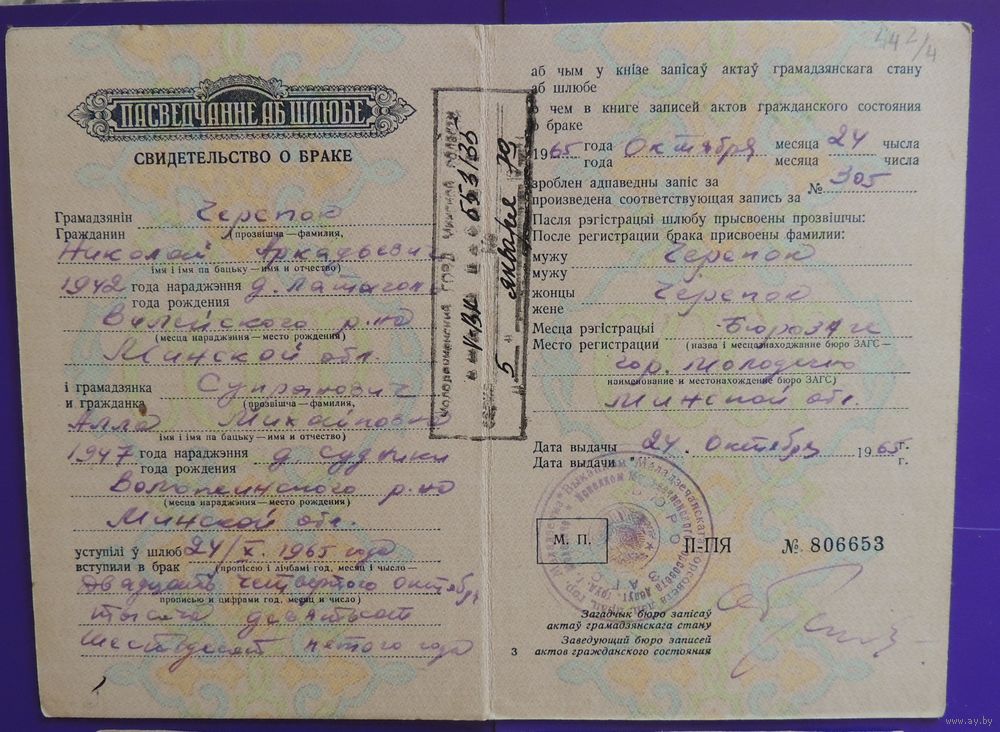 ПАСВЕДЧАННЕ АБ ШЛЮБЕ
СВИДЕТЕЛЬСТВО О БРАКЕ
Грамадзянін
Гражданин
Черепок
(прозвішча—фамилия,
Николай Аркадьевич
імя і імя па бацьку—имя и отчество)
1942 года нараджэння
года рождения
д.
Вилейского р-на
(месца нараджэння—место рождения)
Минской обл.
і грамадзянка
и гражданка
Супранович
(прозвішча—фамилия,
Алла Михайловна
імя і імя па бацьку—имя и отчество)
1947 года нараджэння
года рождения
д. Судники
Воложинского р-на
(месца нараджэння—место рождения)
Минской обл.
уступілі ў шлюб
вступили в брак
24/X. 1965 года
(пропіссю і лічбамі год, месяц і чысло—
двадцать четвертого октября
прописью и цифрами год, месяц и число)
тысяча девятьсот
шестьдесят пятого года
5 января 79
442/4
аб чым у кнізе запісаў актаў грамадзянскага стану
аб шлюбе
о чем в книге записей актов гражданского состояния
о браке
1965 года Октября месяца 24 чысла
года месяца числа
зроблен адпаведны запіс за № 305
произведена соответствующая запись за
Пасля рэгістрацыі шлюбу прысвоены прозвішчы:
После регистрации брака присвоены фамилии:
мужу
мужу
Черепок
жонцы
жене
Черепок
Месца рэгістрацыі
Место регистрации
Бюро ЗАГС
(назва і месцазнаходжанне бюро ЗАГС—
гор. Молодечно
наименование и местонахождение бюро ЗАГС)
Минской обл.
Дата выдачы 24. октября 1965 г.
Дата выдачи г.
М. П.
П-ПЯ № 806653
Загадчык бюро запісаў
актаў грамадзянскага стану
Заведующий бюро записей
актов гражданского состояния
3
www.ay.by